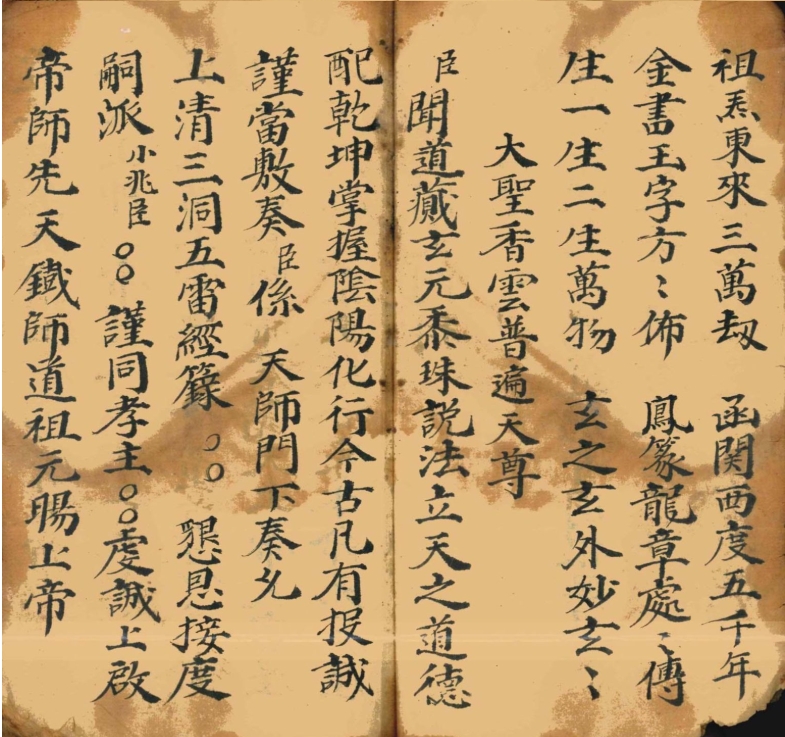 祖炁東來三萬劫 函關西度五千年
金書玉字方〻佈 鳳篆龍章處〻傳
生一生二生萬物 玄之玄外妙玄〻
大聖香雲普遍天尊
臣聞道藏玄元黍珠説法立天之道德
配乾坤掌握陰陽化行今古凡有投誠
謹當敷奏臣係 天師門下奏乆
上清三洞五雷經籙 〇〇 懇恩接度
嗣派小兆臣〇〇謹同孝主〇〇虔誠上啟
帝師先天鐵師道祖元賜上帝